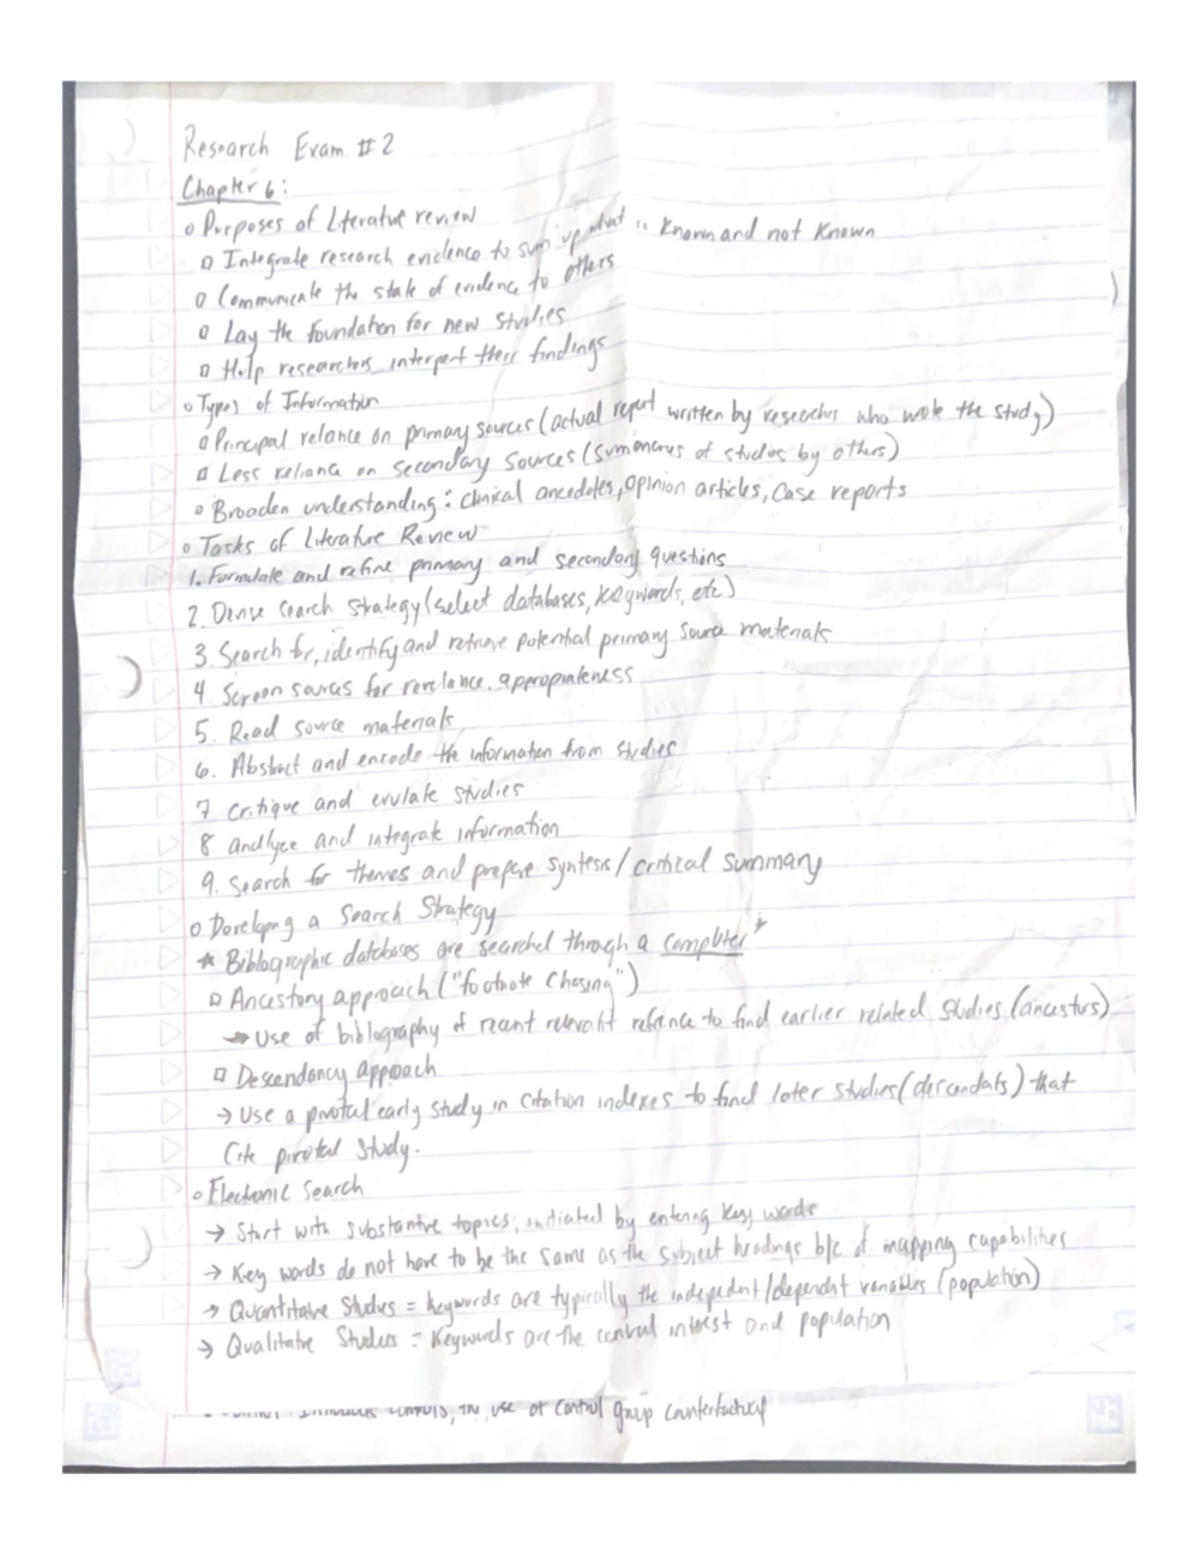 Research Exam #2
Chapter 6:
o Purposes of Literature review
▫ Integrate research evidence to sum up what is known and not known
▫ Communicate the state of evidence to others
▫ Lay the foundation for new studies
▫ Help researchers interpert their findings
o Types of Information
▫ Principal reliance on primary sources (actual report written by researches who wrote the study)
▫ Less reliance on secondary sources (summaries of studies by others)
▫ Broaden understanding: clinical anecdotes, opinion articles, case reports
o Tasks of Literature Review
1. Formulate and refine primary and secondary questions
2. Devise search strategy (select databases, keywords, etc)
3. Search for, identify and retrieve potential primary source materials
4. Screen sources for revelance, appropriateness
5. Read source materials
6. Abstract and encode the information from studies
7 critique and evulate studies
8 andlyze and integrate information
9. Search for themes and prepare syntesis / critical summary
o Developing a Search Strategy
* Bibliographic databases are searched through a computer *
▫ Ancestory approach ("footnote chasing")
→ Use of bibliography of recent relevant refrence to find earlier related studies (ancestors)
▫ Descendancy approach
→ Use a pivotal early study in citation indexes to find later studies (descendats) that
Cite pivotal study.
o Electronic Search
→ Start with substantive topics, initiated by entering key words
→ Key words do not have to be the same as the subject headings b/c of mapping capabilities
→ Quantitative Studies = keywords are typically the indepednt/dependent variables (population)
→ Qualitative Studies = Keywords are the central interest and population
use of control group counterfactual